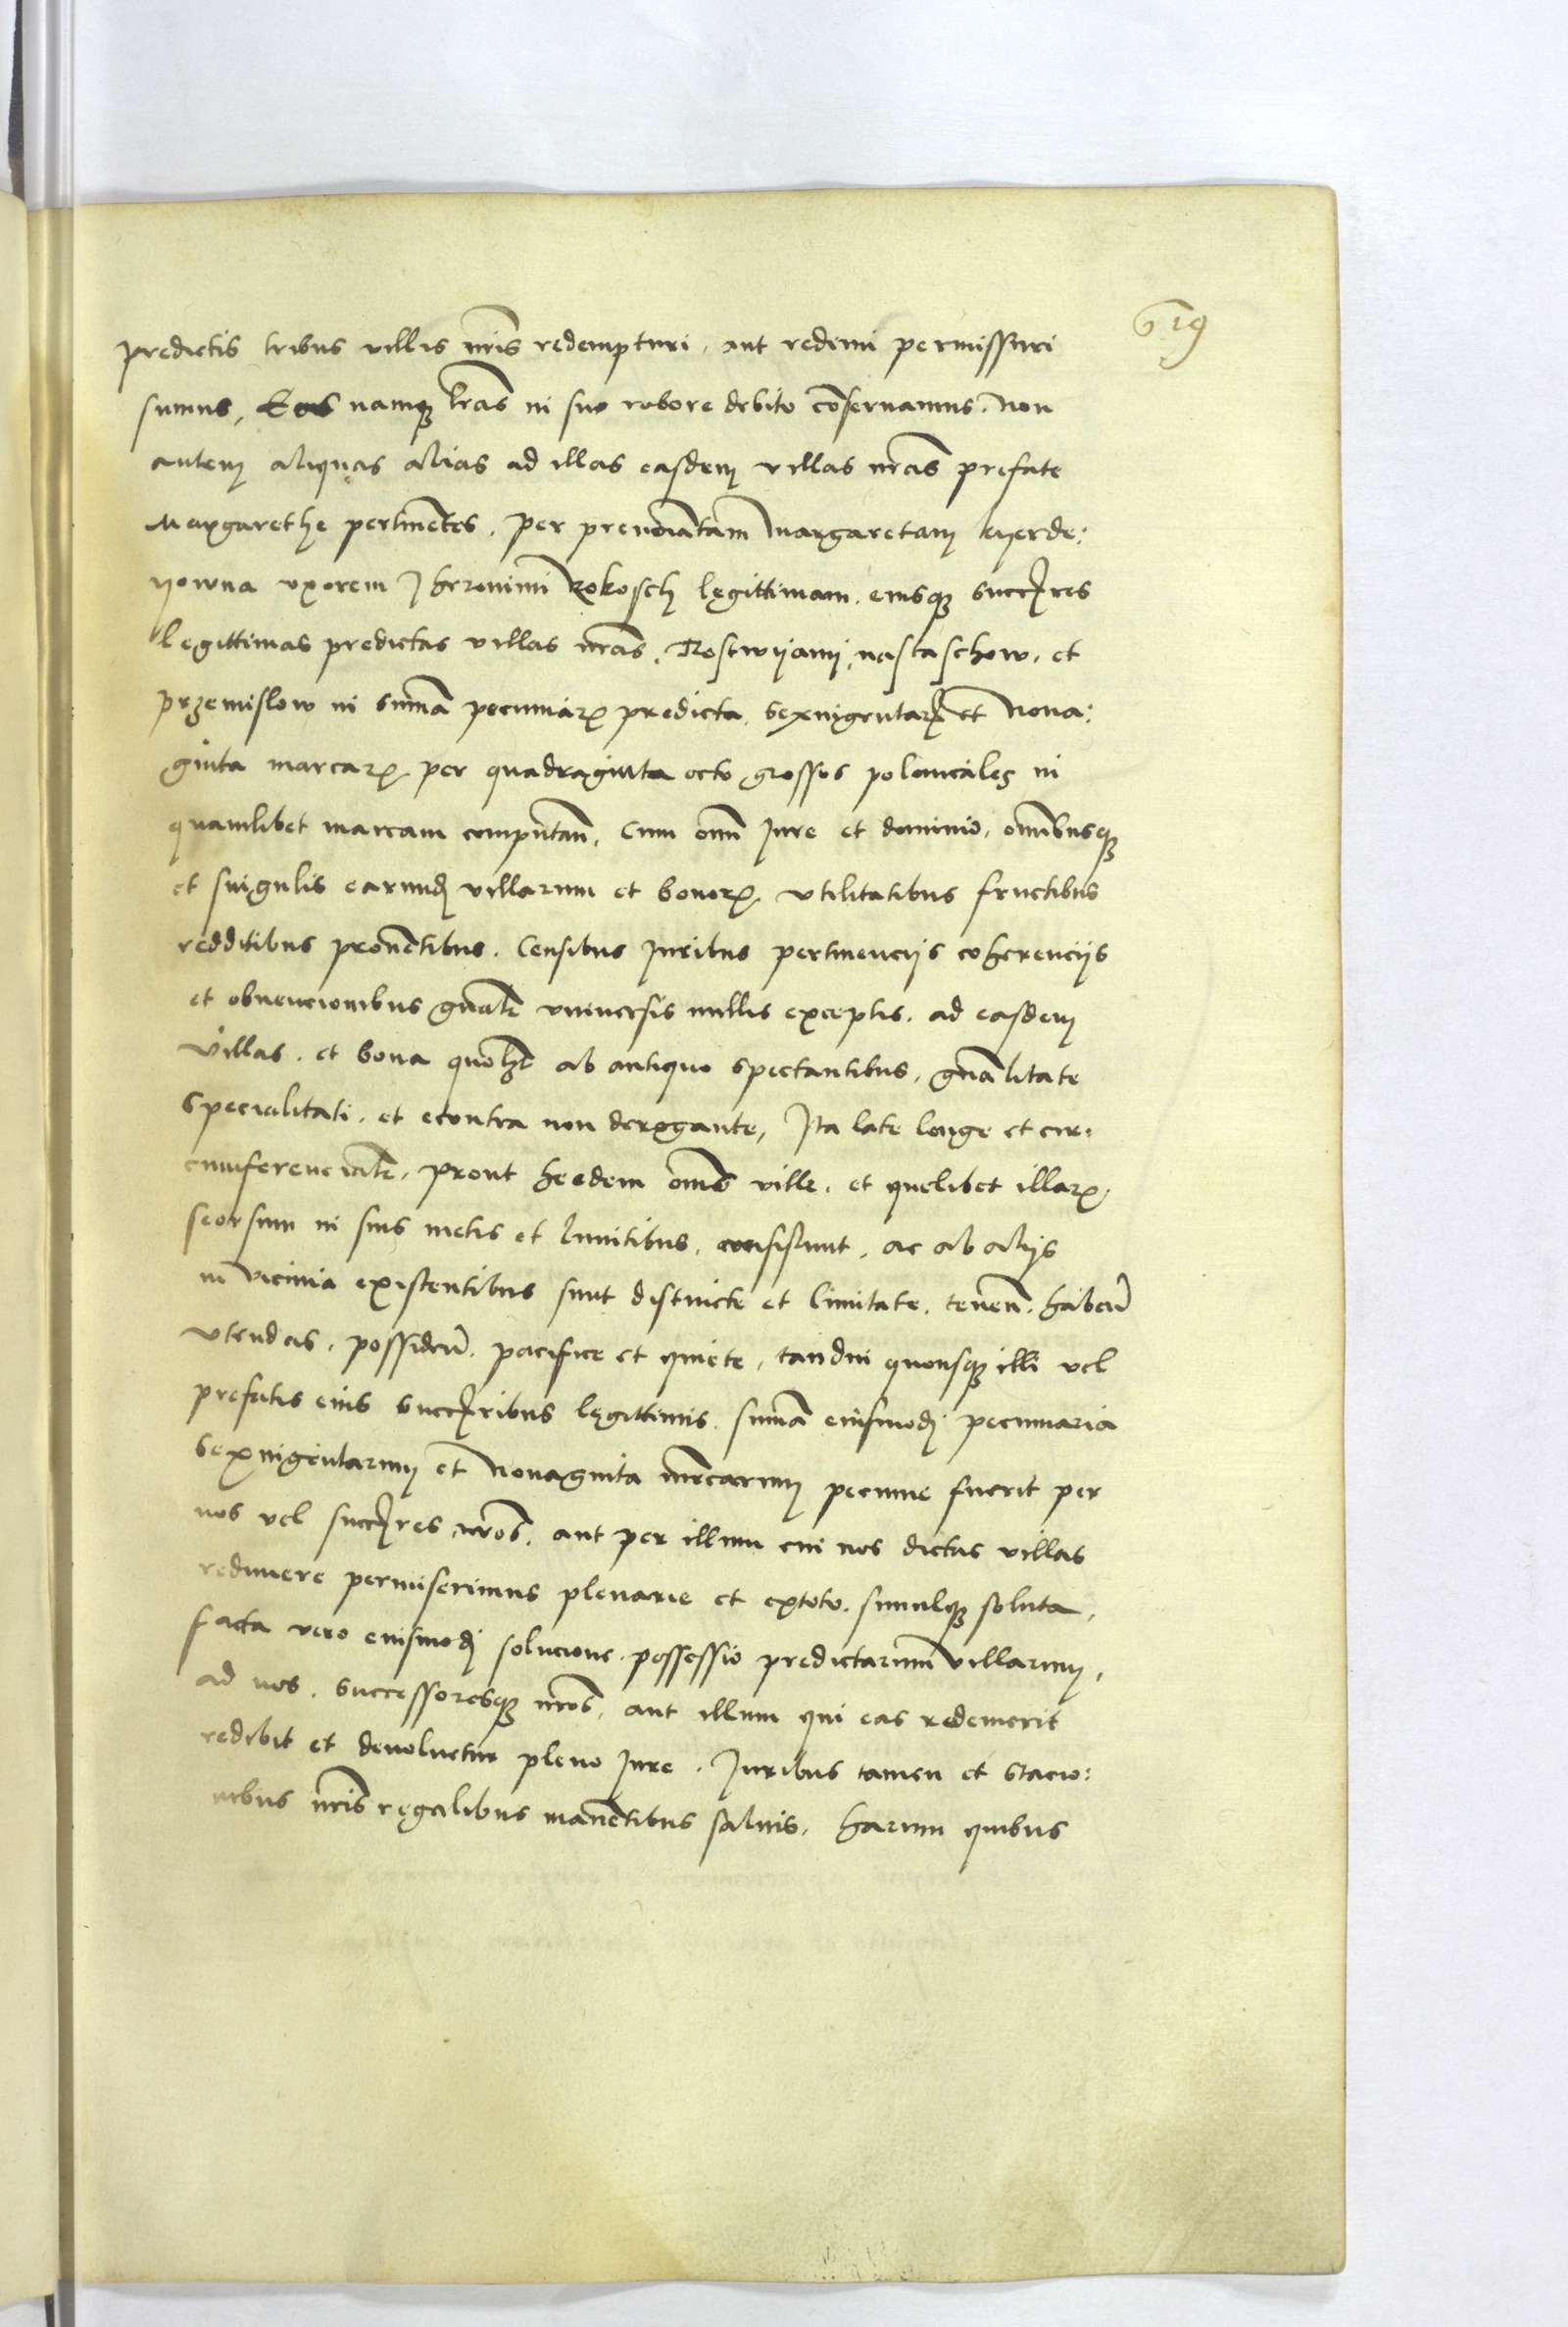 619
predictis tribus villis nr̃is redempturi, aut redimi permissuri
sumus, Eas namq̃ lr̃as in suo robore debito cõservamus. Non
autem aliquas alias ad illas easdem villas nr̃as prefate
Margarethe pertinẽtes, per prenoĩatam Margaretam
nowna uxorem Jheronimi Rokosch legittimam, eiusq̃ succr̃es
legittimas predictas villas nr̃as, Rostwyany, nastaschow, et
przemislow in sum̃a pecuniar̃ predicta, Sexingentar̃ et Nona:
ginta marcar̃ per quadraginta octo grossos polonicales in
quamlibet marcam computan̄, Cum om̃i Jure et dominio, om̃ibusq̃
et singulis earund̃ villarum et bonor̃ utilitatibus fructibus
redditibus provẽtibus, Censibus Juribus pertinencijs coherencijs
et obvencionibus gñalr̃ universis nullis exceptis, ad easdem
villas, et bona quolr̃ ab antiquo spectantibus, gñalitate
specialitati, et econtra non derogante, Ita late longe et cir:
cumferencialr̃, prout heedem om̃es ville, et quelibet illar̃
seorsum in suis metis et limitibus, consistunt, ac ab alijs
in vicinia existentibus sunt distincte et limitate, tenen̄, haben̄
utendas, possiden̄, pacifice et quiete, tandiu quousq̃ illi vel
prefatis eius succr̃ibus legittimis, sum̃a eiusmodi pecuniaria
Sexingentarum et Nonaginta mr̃carum pecunie fuerit per
nos vel succr̃es nr̃os, aut per illum cui nos dictas villas
redimere permiserimus plenarie et extoto, simulq̃ soluta,
facta vero eiusmodi solucione possessio predictarum villarum,
ad nos, Successoresq̃ nr̃os, aut illum qui eas redemerit
redibit et devolvetur pleno Jure, Juribus tamen et Stacio:
nibus nr̃is regalibus manẽtibus salvis, harum quibus